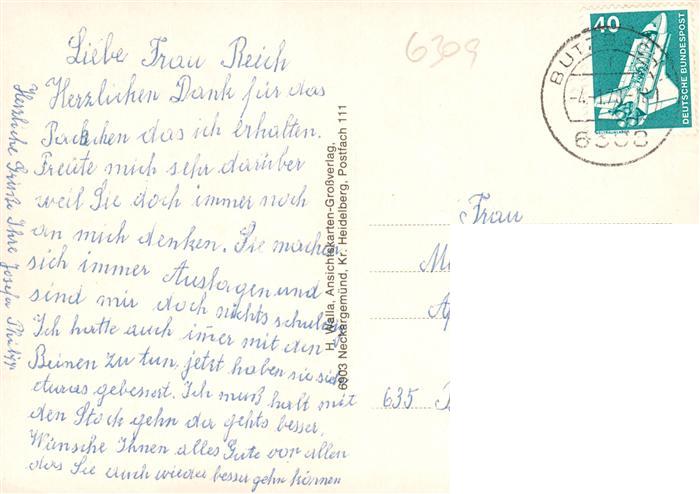 Liebe Frau Reich
Herzlichen Dank für das
Päckchen das ich erhalten.
Freute mich sehr darüber
weil Sie doch immer noch
an mich denken. Sie machen
sich immer Auslagen und
sind mir doch nichts schuldig
Ich hatte auch immer mit den
Beinen zu tun, jetzt haben sie sich
etwas gebessert. Ich muß halt mit
den Stock gehn da gehts besser.
Wünsche Ihnen alles Gute vor allen
das Sie auch wieder besser gehn können
Herzliche Grüße Ihre Josefa Philipp
H. Walla, Ansichtskarten-Großverlag,
6903 Neckargemünd, Kr. Heidelberg, Postfach 111
6309
40
DEUTSCHE BUNDESPOST
BUTZ
6308
Frau
635